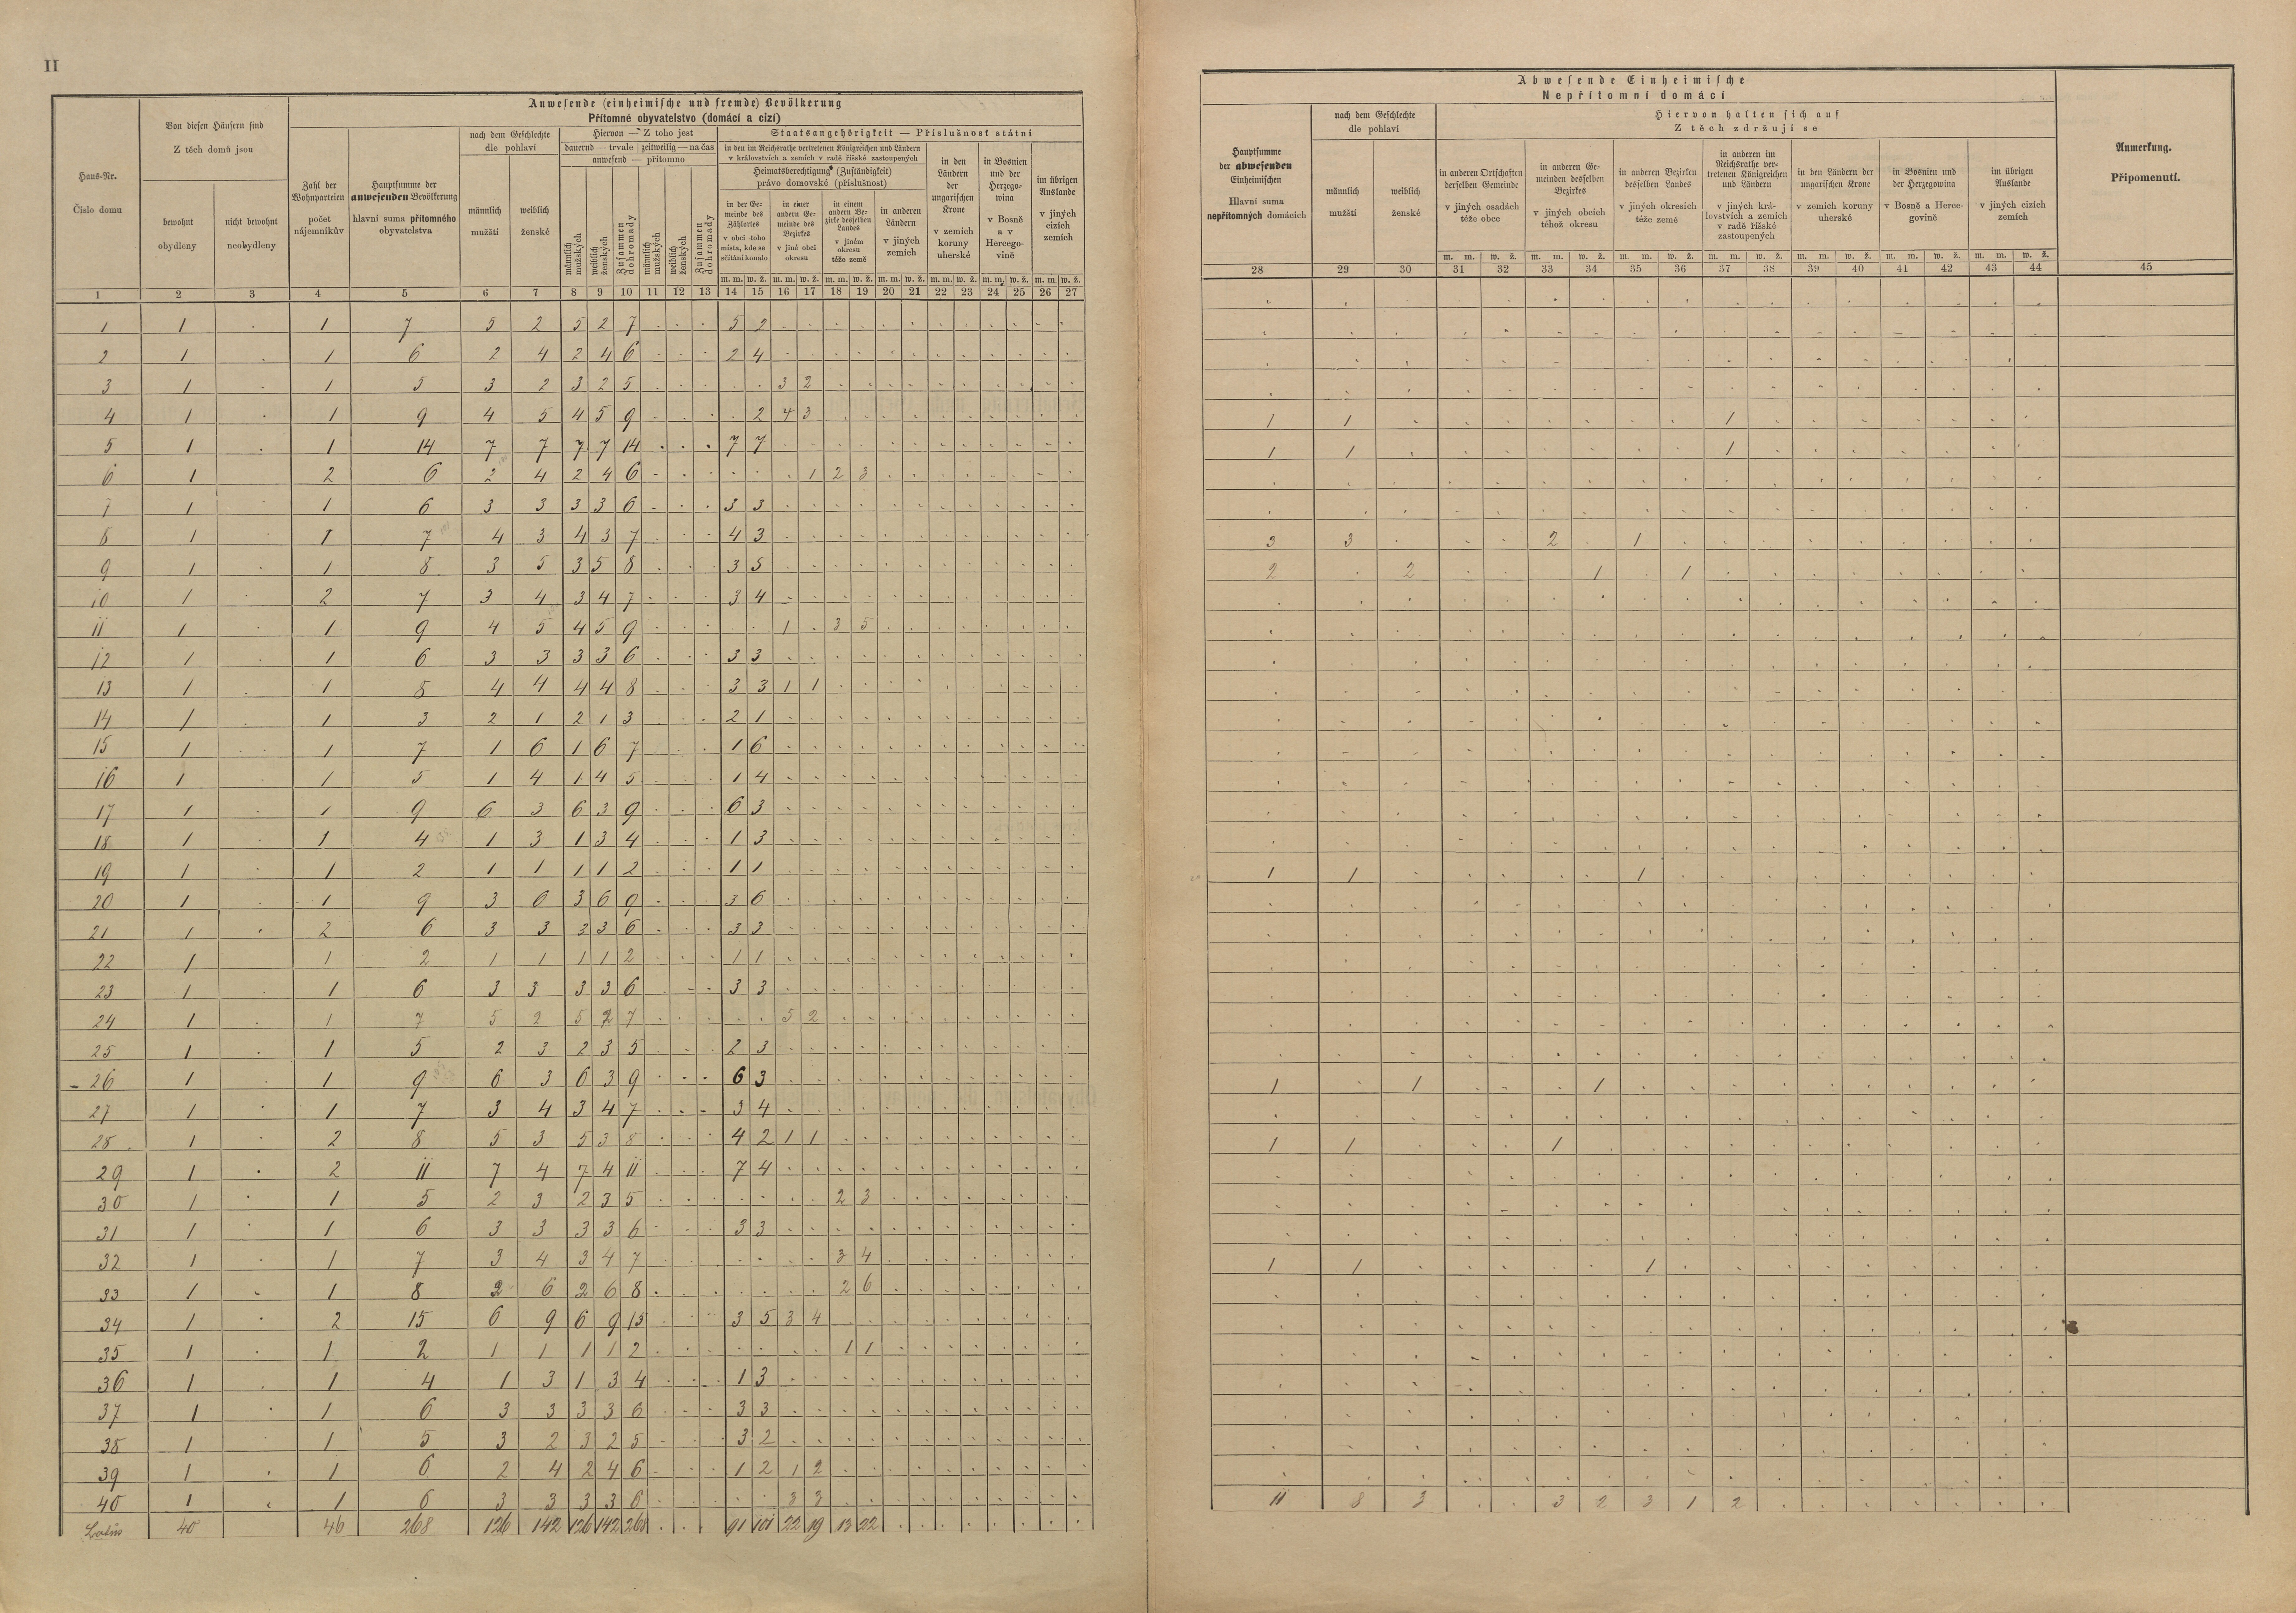 II
Anwesende (einheimische und fremde) Bevölkerung
Přítomné obyvatelstvo (domácí a cizí)
Haus-Nr.
Číslo domu
Von diesen Häusern sind
Z těch domů jsou
bewohnt
obydleny
nicht bewohnt
neobydleny
Zahl der Wohnparteien
počet nájemníkův
Hauptsumme der anwesenden Bevölkerung
hlavní suma přítomného obyvatelstva
nach dem Geschlechte
dle pohlaví
männlich
mužští
weiblich
ženské
Hiervon — Z toho jest
dauernd — trvale | zeitweilig — na čas
anwesend — přítomno
männlich mužských
weiblich ženských
Zusammen dohromady
männlich mužských
weiblich ženských
Zusammen dohromady
Staatsangehörigkeit — Příslušnost státní
in den im Reichsrathe vertretenen Königreichen und Ländern
v královstvích a zemích v radě říšské zastoupených
Heimatsberechtigung (Zuständigkeit)
právo domovské (příslušnost)
in der Gemeinde des Zählortes
v obci toho místa, kde se sčítání konalo
in einer andern Gemeinde des Bezirkes
v jiné obci okresu
in einem andern Bezirke desselben Landes
v jiném okresu téže země
in anderen Ländern
v jiných zemích
in den Ländern der ungarischen Krone
v zemích koruny uherské
in Bosnien und der Herzegowina
v Bosně a v Hercegovině
im übrigen Auslande
v jiných cizích zemích
m. m. w. ž. m. m. w. ž. m. m. w. ž. m. m. w. ž. m. m. w. ž. m. m. w. ž. m. m. w. ž.
1 2 3 4 5 6 7 8 9 10 11 12 13 14 15 16 17 18 19 20 21 22 23 24 25 26 27
1 1 . 1 7 5 2 5 2 7 . . . 5 2
2 1 . 1 6 2 4 2 4 6 . . . 2 4
3 1 . 1 5 3 2 3 2 5 . . . . . 3 2
4 1 . 1 9 4 5 4 5 9 . . . . 2 4 3
5 1 . 1 14 7 7 7 7 14 . . . 7 7
6 1 . 2 6 2 4 2 4 6 . . . . . . 1 2 3
7 1 . 1 6 3 3 3 3 6 . . . 3 3
8 1 . 1 7 4 3 4 3 7 . . . 4 3
9 1 . 1 8 3 5 3 5 8 . . . 3 5
10 1 . 2 7 3 4 3 4 7 . . . 3 4
11 1 . 1 9 4 5 4 5 9 . . . . . 1 . 3 5
12 1 . 1 6 3 3 3 3 6 . . . 3 3
13 1 . 1 8 4 4 4 4 8 . . . 3 3 1 1
14 1 . 1 3 2 1 2 1 3 . . . 2 1
15 1 . 1 7 1 6 1 6 7 . . . 1 6
16 1 . 1 5 1 4 1 4 5 . . . 1 4
17 1 . 1 9 6 3 6 3 9 . . . 6 3
18 1 . 1 4 1 3 1 3 4 . . . 1 3
19 1 . 1 2 1 1 1 1 2 . . . 1 1
20 1 . 1 9 3 6 3 6 9 . . . 3 6
21 1 . 2 6 3 3 3 3 6 . . . 3 3
22 1 . 1 2 1 1 1 1 2 . . . 1 1
23 1 . 1 6 3 3 3 3 6 . . . 3 3
24 1 . 1 7 5 2 5 2 7 . . . . . 5 2
25 1 . 1 5 2 3 2 3 5 . . . 2 3
26 1 . 1 9 6 3 6 3 9 . . . 6 3
27 1 . 1 7 3 4 3 4 7 . . . 3 4
28 1 . 2 8 5 3 5 3 8 . . . 4 2 1 1
29 1 . 2 11 7 4 7 4 11 . . . 7 4
30 1 . 1 5 2 3 2 3 5 . . . . . . . 2 3
31 1 . 1 6 3 3 3 3 6 . . . 3 3
32 1 . 1 7 3 4 3 4 7 . . . . . . . 3 4
33 1 . 1 8 2 6 2 6 8 . . . . . . . 2 6
34 1 . 2 15 6 9 6 9 15 . . . 3 5 3 4
35 1 . 1 2 1 1 1 1 2 . . . . . . . 1 1
36 1 . 1 4 1 3 1 3 4 . . . 1 3
37 1 . 1 6 3 3 3 3 6 . . . 3 3
38 1 . 1 5 3 2 3 2 5 . . . 3 2
39 1 . 1 6 2 4 2 4 6 . . . 1 2 1 2
40 1 . 1 6 3 3 3 3 6 . . . . . 3 3
Latus 40 46 268 126 142 126 142 268 . . . 91 101 22 19 13 22
Abwesende Einheimische
Nepřítomní domácí
Hauptsumme der abwesenden Einheimischen
Hlavní suma nepřítomných domácích
nach dem Geschlechte
dle pohlaví
männlich
mužští
weiblich
ženské
Hiervon halten sich auf
Z těch zdržují se
in anderen Ortschaften derselben Gemeinde
v jiných osadách téže obce
in anderen Gemeinden desselben Bezirkes
v jiných obcích téhož okresu
in anderen Bezirken desselben Landes
v jiných okresích téže země
in anderen im Reichsrathe vertretenen Königreichen und Ländern
v jiných královstvích a zemích v radě říšské zastoupených
in den Ländern der ungarischen Krone
v zemích koruny uherské
in Bosnien und der Herzegowina
v Bosně a Hercegovině
im übrigen Auslande
v jiných cizích zemích
Anmerkung.
Připomenutí.
m. m. w. ž. m. m. w. ž. m. m. w. ž. m. m. w. ž. m. m. w. ž. m. m. w. ž. m. m. w. ž.
28 29 30 31 32 33 34 35 36 37 38 39 40 41 42 43 44 45
1 1 . . . . . . . 1
1 1 . . . . . . . 1
3 3 . . . 2 . 1
2 . 2 . . . 1 . 1
1 1 . . . . . 1
1 . 1 . . . 1
1 1 . . . 1
1 1 . . . . . 1
11 8 3 . . 3 2 3 1 2